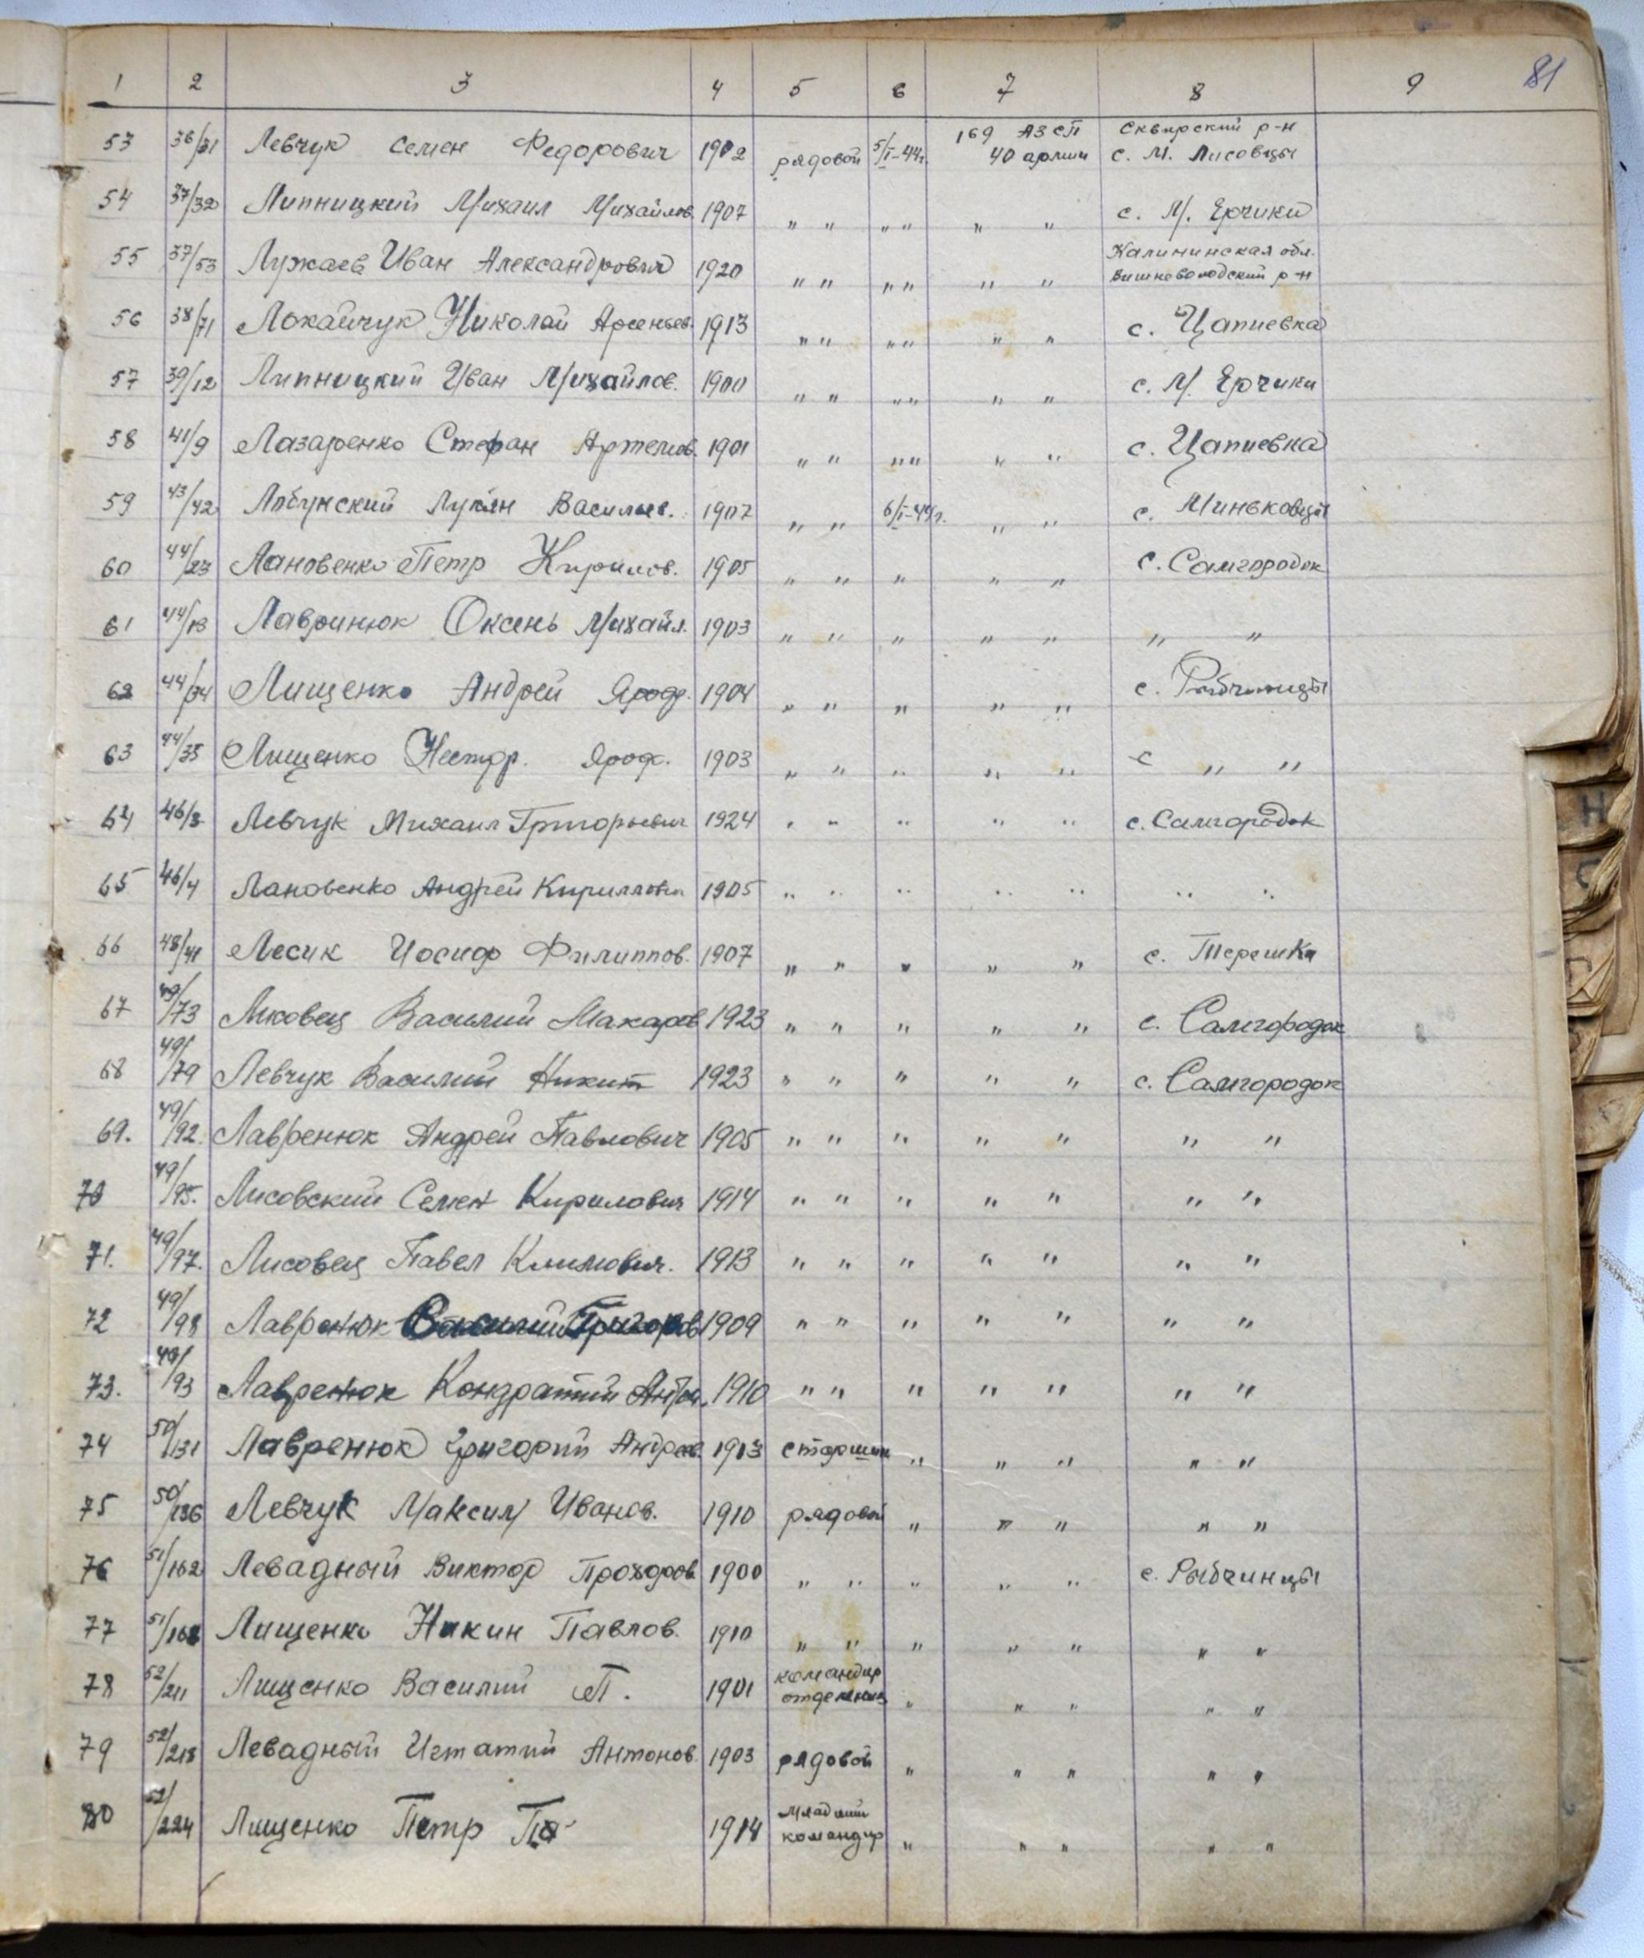 81
1 2 3 4 5 6 7 8 9
53 36/31 Левчук Семен Федорович 1902 рядовой 5/I-44г. 169 АЗСП 40 армии Сквирский р-н с. М. Лисовцы
54 37/32 Липницкий Михаил Михайлов. 1907 " " " " " " с. М. Ерчики
55 37/53 Лужаев Иван Александрович 1920 " " " " " " Калининская обл. Вишневолодский р-н
56 38/71 Локайчук Николай Арсеньев. 1913 " " " " " " с. Цапиевка
57 39/12 Липницкий Иван Михайлов. 1900 " " " " " " с. М. Ерчики
58 41/9 Лазаренко Стефан Артемов. 1901 " " " " " " с. Цапиевка
59 43/42 Лобунский Лукян Васильев. 1907 " " 6/I-44г. " " с. Миньковцы
60 44/23 Лановенко Петр Кирилов. 1905 " " " " " с. Самгородок
61 44/13 Лавринюк Оксень Михайл. 1903 " " " " " " "
62 44/34 Лищенко Андрей Яроф. 1904 " " " " " с. Рыбчинцы
63 44/35 Лищенко Нестор. Яроф. 1903 " " " " " с " "
64 46/3 Левчук Михаил Григорьевич 1924 " " " " " с. Самгородок
65 46/4 Лановенко Андрей Кириллович 1905 " " " " " " "
66 48/41 Лесик Иосиф Филиппов. 1907 " " " " " с. Терешки
67 49/73 Лисовец Василий Макаров 1923 " " " " " с. Самгородок
68 49/79 Левчук Василий Никит 1923 " " " " " с. Самгородок
69. 49/92. Лавренюк Андрей Павлович 1905 " " " " " " "
70 49/95. Лисовский Семен Кирилович 1914 " " " " " " "
71. 49/97. Лисовец Павел Климович. 1913 " " " " " " "
72 49/98 Лавренюк Василий Григоров 1909 " " " " " " "
73. 49/93 Лавренюк Кондратий Антон. 1910 " " " " " " "
74 50/131 Лавренюк Григорий Андреев. 1913 старшин " " " " "
75 50/136 Левчук Максим Иванов. 1910 рядовой " " " " "
76 51/162 Левадный Виктор Прохоров 1900 " " " " " с. Рыбчинцы
77 51/168 Лищенко Никин Павлов. 1910 " " " " " " "
78 52/211 Лищенко Василий П. 1901 командир отделения " " " " "
79 52/218 Левадный Игнатий Антонов. 1903 рядовой " " " " "
80 52/224 Лищенко Петр Па 1914 младший командир " " " " "